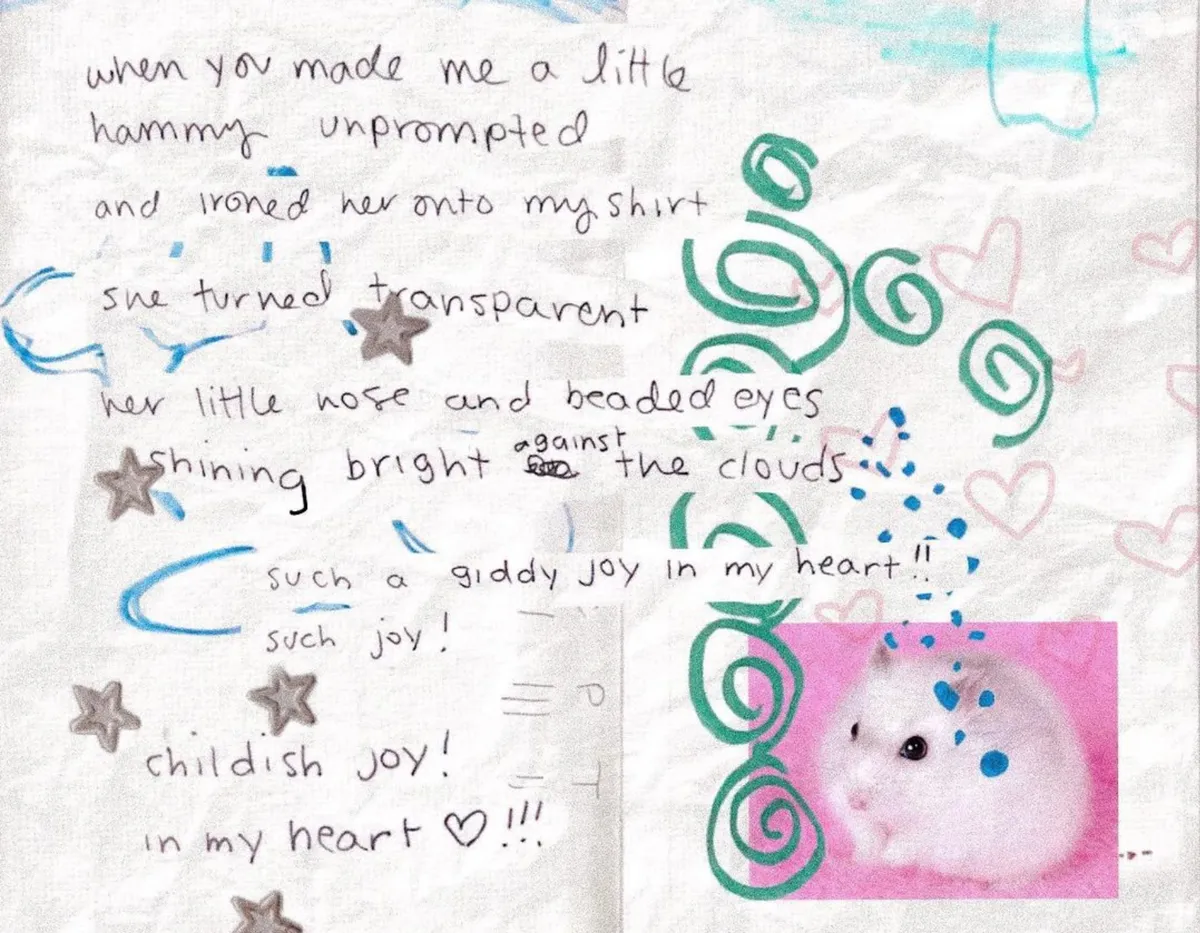 when you made me a little
hammy unprompted
and ironed her onto my shirt
she turned transparent
her little nose and beaded eyes
shining bright against the clouds
such a giddy joy in my heart!!
such joy!
childish joy!
in my heart ♡!!!